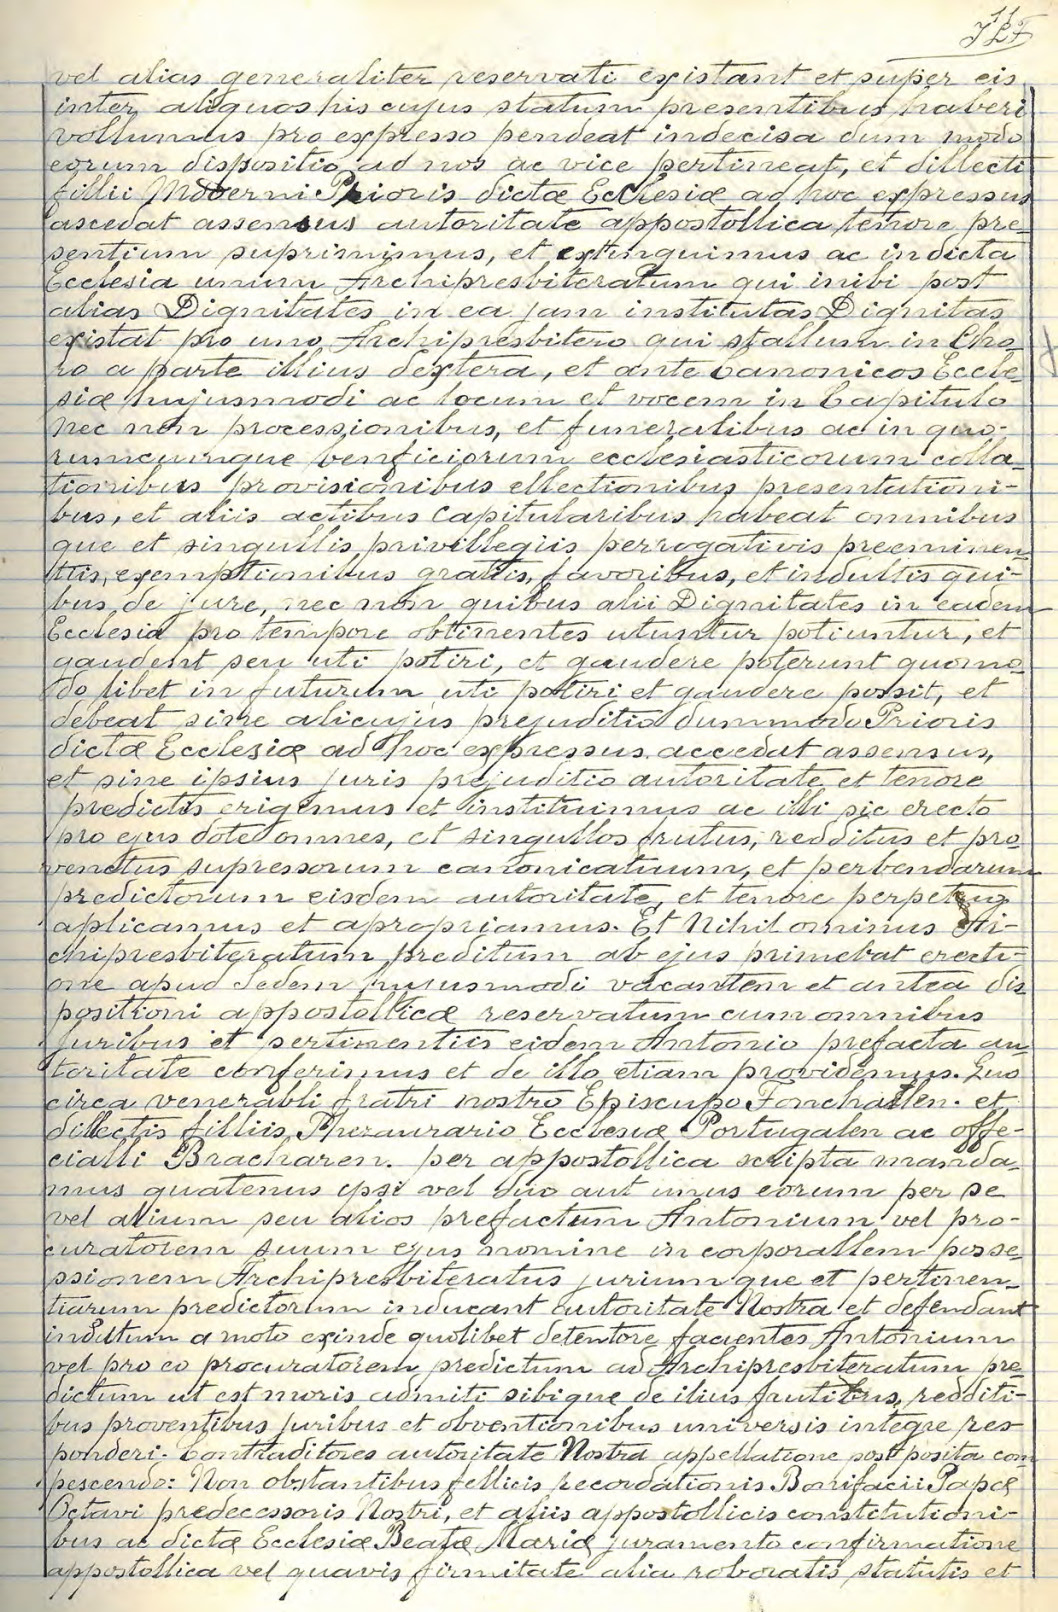 11
vel alias generaliter reservati existant et super eis
inter aliquos his cujus statum presentibus haberi
vollumus pro expresso pendeat indecisa dum modo
eorum dispositio ad nos ac vice pertineat, et dillecti
fillii Moderni Prioris dictæ Ecclesiæ ad hoc expressus
ascedat assensus autoritate appostollica tenore pre-
sentium suprimimus, et extinguimus ac in dicta
Ecclesia unum Archipresbiteratum qui inibi post
alias Dignitates in ea jam institutas Dignitas
existat pro uno Archipresbitero qui stallum in Cho-
ro a parte illius dextera, et ante Canonicos Eccle-
siæ hujusmodi ac locum et vocem in Capitulo
nec non processionibus, et funeralibus ac in quo-
rumcumque benficiorum ecclesiasticorum colla-
tionibus provisionibus ellectionibus presentationi-
bus, et aliis actibus Capitularibus habeat omnibus
que et singullis privillegiis perrogativis preeminen-
tiis, exemptionibus gratiis, favoribus, et indultis qui-
bus, de jure, nec non quibus alii Dignitates in eadem
Ecclesia pro tempore obtinentes utuntur potiuntur, et
gaudent seu uti potiri, et gaudere poterunt quomo-
do libet in futurum uti potiri et gaudere possit, et
debeat sine alicujus prejuditio dummodo Prioris
dictæ Ecclesiæ ad hoc expressus accedat assensus,
et sine ipsius juris prejuditio autoritate et tenore
predictis erigimus et instituimus ac illi sic erecto
pro ejus dote omnes, et singullos frutus, redditus et pro-
ventus supressorum canonicatuum, et perbendarum
predictorum eisdem autoritate, et tenore perpetuo
aplicamus et apropriamus. Et Nihil ominus Ar-
chipresbiteratum preditum ab ejus primebat erecti-
one apud Sedem hujusmodi vacantem et antea dis
positioni appostollicæ reservatum cum omnibus
juribus et pertinentiis eidem Antonio prefacta au-
toritate conferimus et de illo etiam providemus. Quo
circa venerabli fratri nostro Episcupo Fonchallen. et
dillectis filliis Thezaurario Ecclesiæ Portugalen ac offe-
cialli Bracharen. per appostollica scripta manda-
mus quatenus ipsi vel duo aut unus eorum per se
vel alium seu alios prefactum Antonium vel pro-
curatorem suum ejus nomine in corporallem posse-
ssionem Archipresbiteratus jurium que et pertinen-
tiarum predictorum inducant autoritate Nostra et defendant
indutum a moto exinde quolibet detentore facientes Antonium
vel pro eo procuratorem predictum ad Archipresbiteratum pre-
dictum ut est muris admiti sibique de ilius frutibus, redditi-
bus proventibus juribus et obventionibus universis integre res
ponderi. Contraditores autoritate Nostra appellatione post posita com
pescendo: Non obstantibus fellicis recordationis Bonifacii Papæ
Octavi predecessoris Nostri, et aliis appostollicis constitutioni-
bus ac dictæ Ecclesiæ Beatæ Mariæ juramento confirmatione
appostollica vel quavis firmitate alia roboratis statutis et